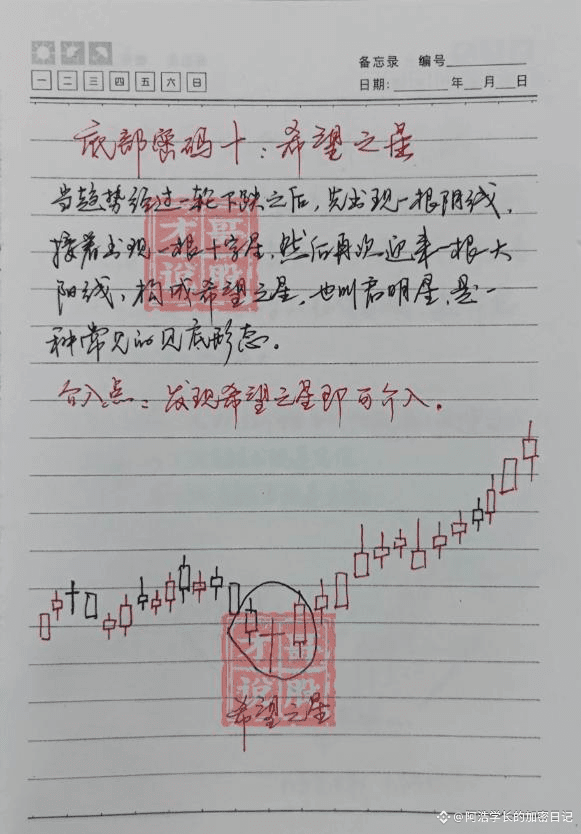 备忘录 编号
一 二 三 四 五 六 日
日期: 年 月 日
底部密码十:希望之星
当趋势经过一轮下跌之后,先出现一根阴线,
接着出现一根十字星,然后再次迎来一根大
阳线,构成希望之星,也叫启明星,是一
种常见的见底形态。
介入点:发现希望之星即可介入.
才哥说股
才哥说股
希望之星
@阿浩学长的加密日记